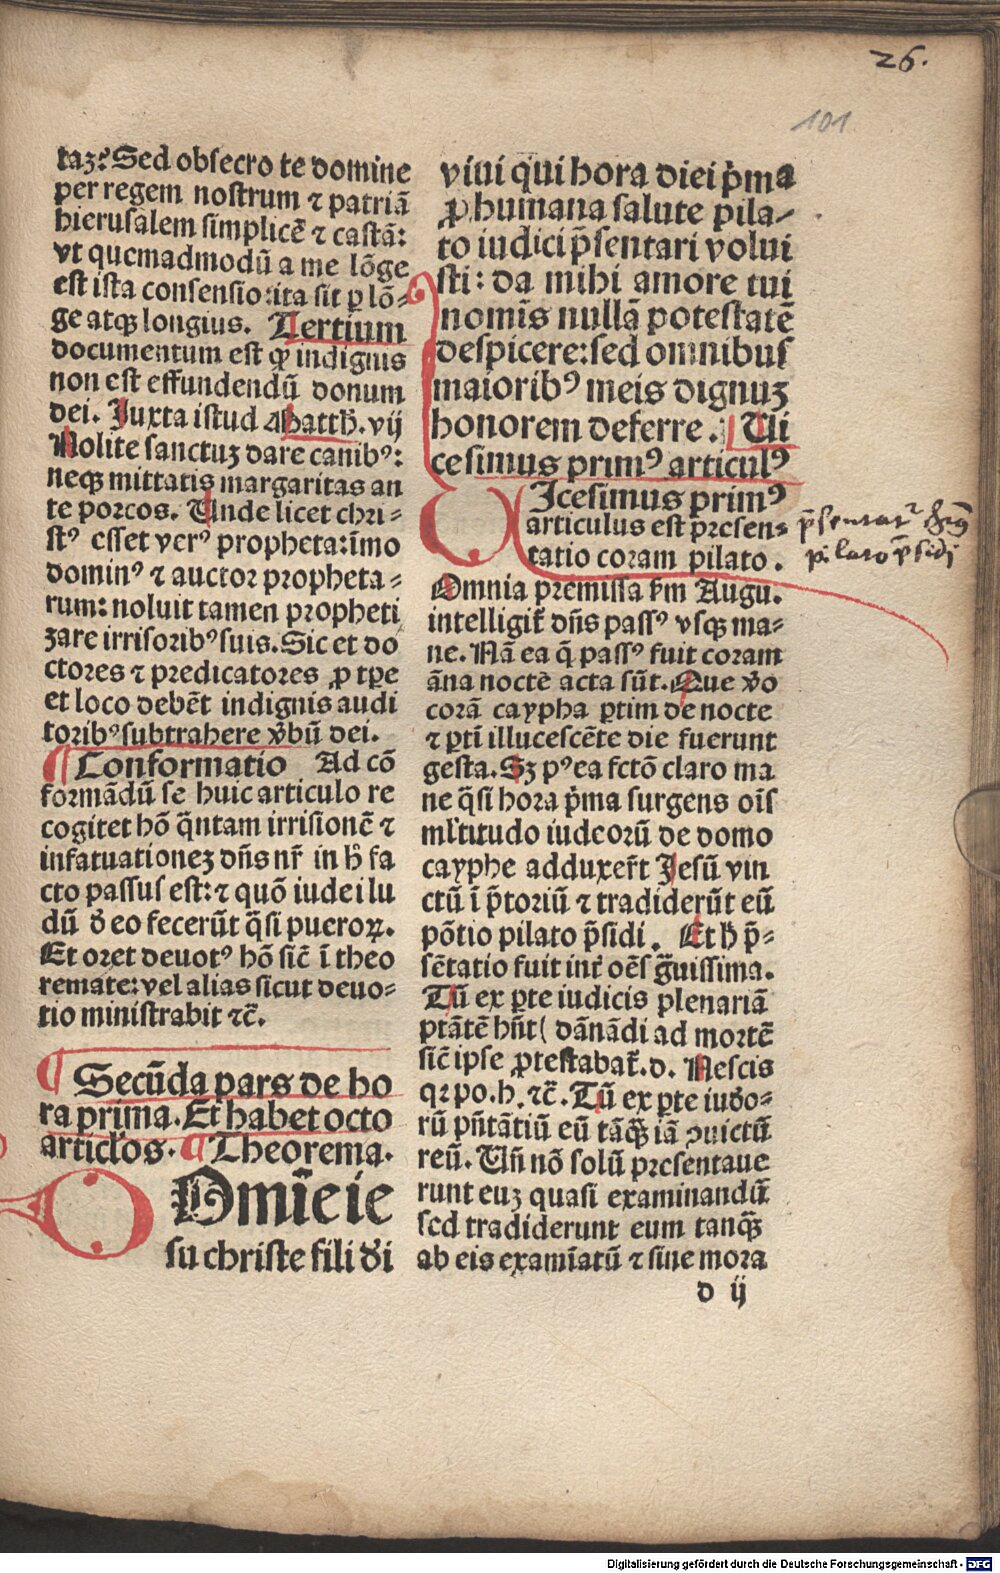 26.
101
taꝫ? Sed obsecro te domine
per regem nostrum ⁊ patriā
hierusalem simplicē ⁊ castā:
vt quemadmodū a me lōge
est ista consensio: ita sit ꝑ lō-
ge atqꝫ longius. Tertium
documentum est ꝙ indignis
non est effundendū donum
dei. Juxta istud Matth̄. vij
Nolite sanctuꝫ dare canibꝰ:
neqꝫ mittatis margaritas an
te porcos. Unde licet chri-
stꝰ esset verꝰ propheta: īmo
dominꝰ ⁊ auctor propheta-
rum: noluit tamen propheti
zare irrisoribꝰ suis. Sic et do
ctores ⁊ predicatores ꝓ tꝑe
et loco debēt indignis audi
toribꝰ subtrahere v̄bū dei.
¶ Conformatio Ad cō
formādū se huic articulo re
cogitet hō q̄ntam irrisionē ⁊
infatuationeꝫ dn̄s nr̄ in h̄ fa
cto passus est: ⁊ quō iudei lu
dū d̄ eo fecerūt q̄si pueroꝝ.
Et oret deuotꝰ hō sic̄ ī theo
remate: vel alias sicut deuo-
tio ministrabit ⁊c̄.
¶ Secūda pars de ho
ra prima. Et habet octo
articl̓os. ¶ Theorema.
O Dom̄ie ie
su christe fili d̄i
viui qui hora diei p̄ma
ꝓ humana salute pila-
to iudici p̄sentari volui
sti: da mihi amore tui
nomīs nullā potestatē
despicere: sed omnibus
maioribꝰ meis dignuꝫ
honorem deferre. Ui
cesimus primꝰ articulꝰ
U Icesimus primꝰ
articulus est presen-
tatio coram pilato.
p̄sentatᷣ
pilato p̄sidi
Omnia premissa ẜm Augu.
intelligit̄ dn̄s passꝰ vsqꝫ ma-
ne. Nā ea q̄ passꝰ fuit coram
āna nocte acta sūt. Que v̄o
corā caypha ꝑtim de nocte
⁊ ꝑtī illucescēte die fuerunt
gesta. Sꝫ pꝰea fctō claro ma
ne q̄si hora p̄ma surgens oīs
ml̓titudo iudeorū de domo
cayphe adduxer̄t Jesū vin
ctū ī p̄toriū ⁊ tradiderūt eū
pōtio pilato p̄sidi. Et h̄ p̄-
sētatio fuit int̓ oēs g̈uissima.
Tū ex ꝑte iudicis plenariā
ptātē hn̄t( dānādi ad mortē
sic̄ ipse ꝓtestabat̄. d. Nescis
qꝛ po. h. ⁊c̄. Tū ex ꝑte iudo-
rū pn̄tātiū eū tāqꝫ̄ iā ꝯuictū
reū. Un̄ nō solū presentaue
runt euꝫ quasi examinandū
sed tradiderunt eum tanqꝫ̄
ab eis examīatū ⁊ sine mora
d ij
Digitalisierung gefördert durch die Deutsche Forschungsgemeinschaft - DFG